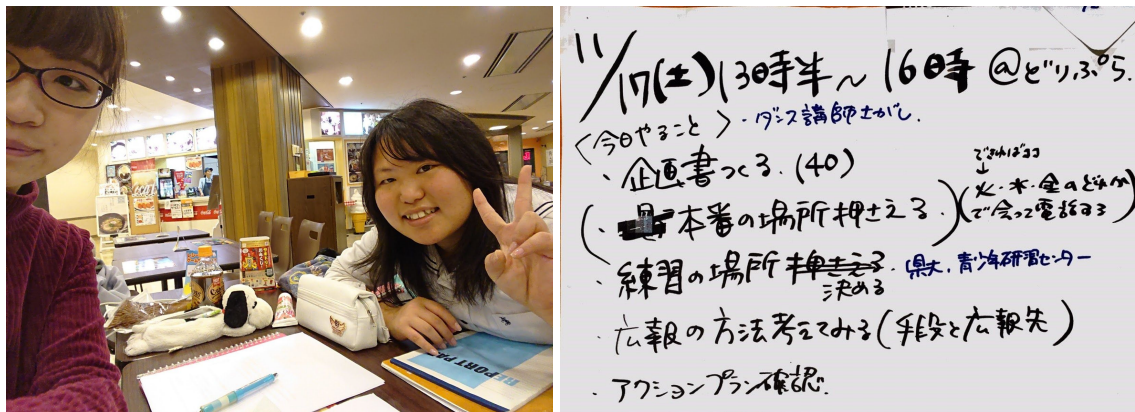 REPORT PA
11/17(土)13時半～16時@どりぷら.
<今日やること> ・ダンス講師さがし.
・企画書つくる.(40)
できればココ
↓
(・本番の場所押さえる.)(火・木・金のどれか
で会って電話する)
・練習の場所押さえる.県大,青少年研習センター
決める
・広報の方法考えてみる(手段と広報先)
・アクションプラン確認.